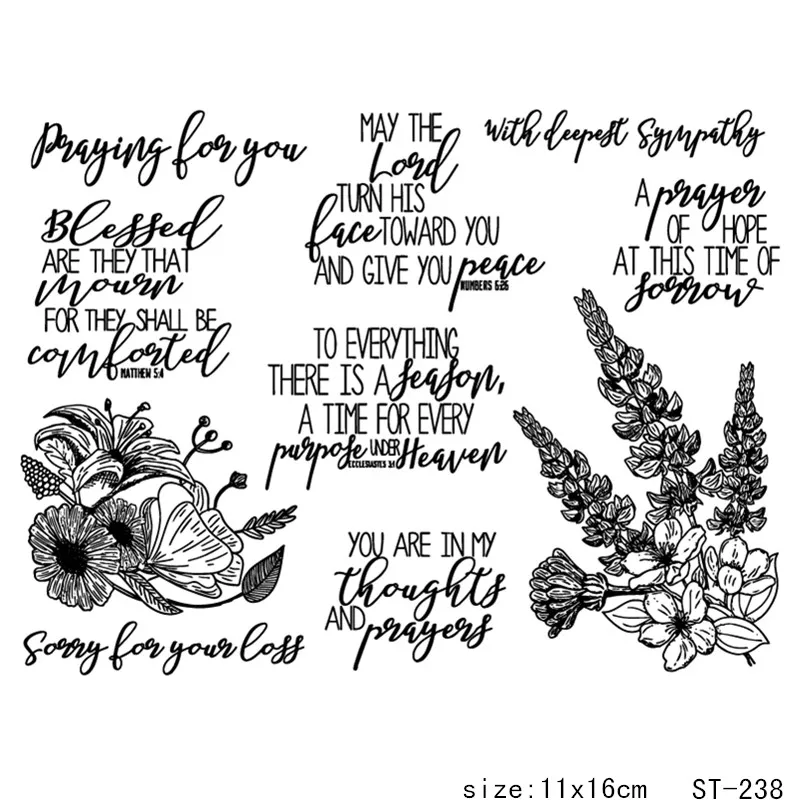 Praying for you
Blessed
ARE THEY THAT
mourn
FOR THEY SHALL BE
comforted
MATTHEW 5:4
MAY THE
Lord
TURN HIS
face TOWARD YOU
AND GIVE YOU peace
NUMBERS 6:26
With deepest Sympathy
A prayer
OF HOPE
AT THIS TIME OF
sorrow
TO EVERYTHING
THERE IS A season,
A TIME FOR EVERY
purpose UNDER Heaven
ECCLESIASTES 3:1
YOU ARE IN MY
thoughts
AND prayers
Sorry for your loss
size:11x16cm ST-238